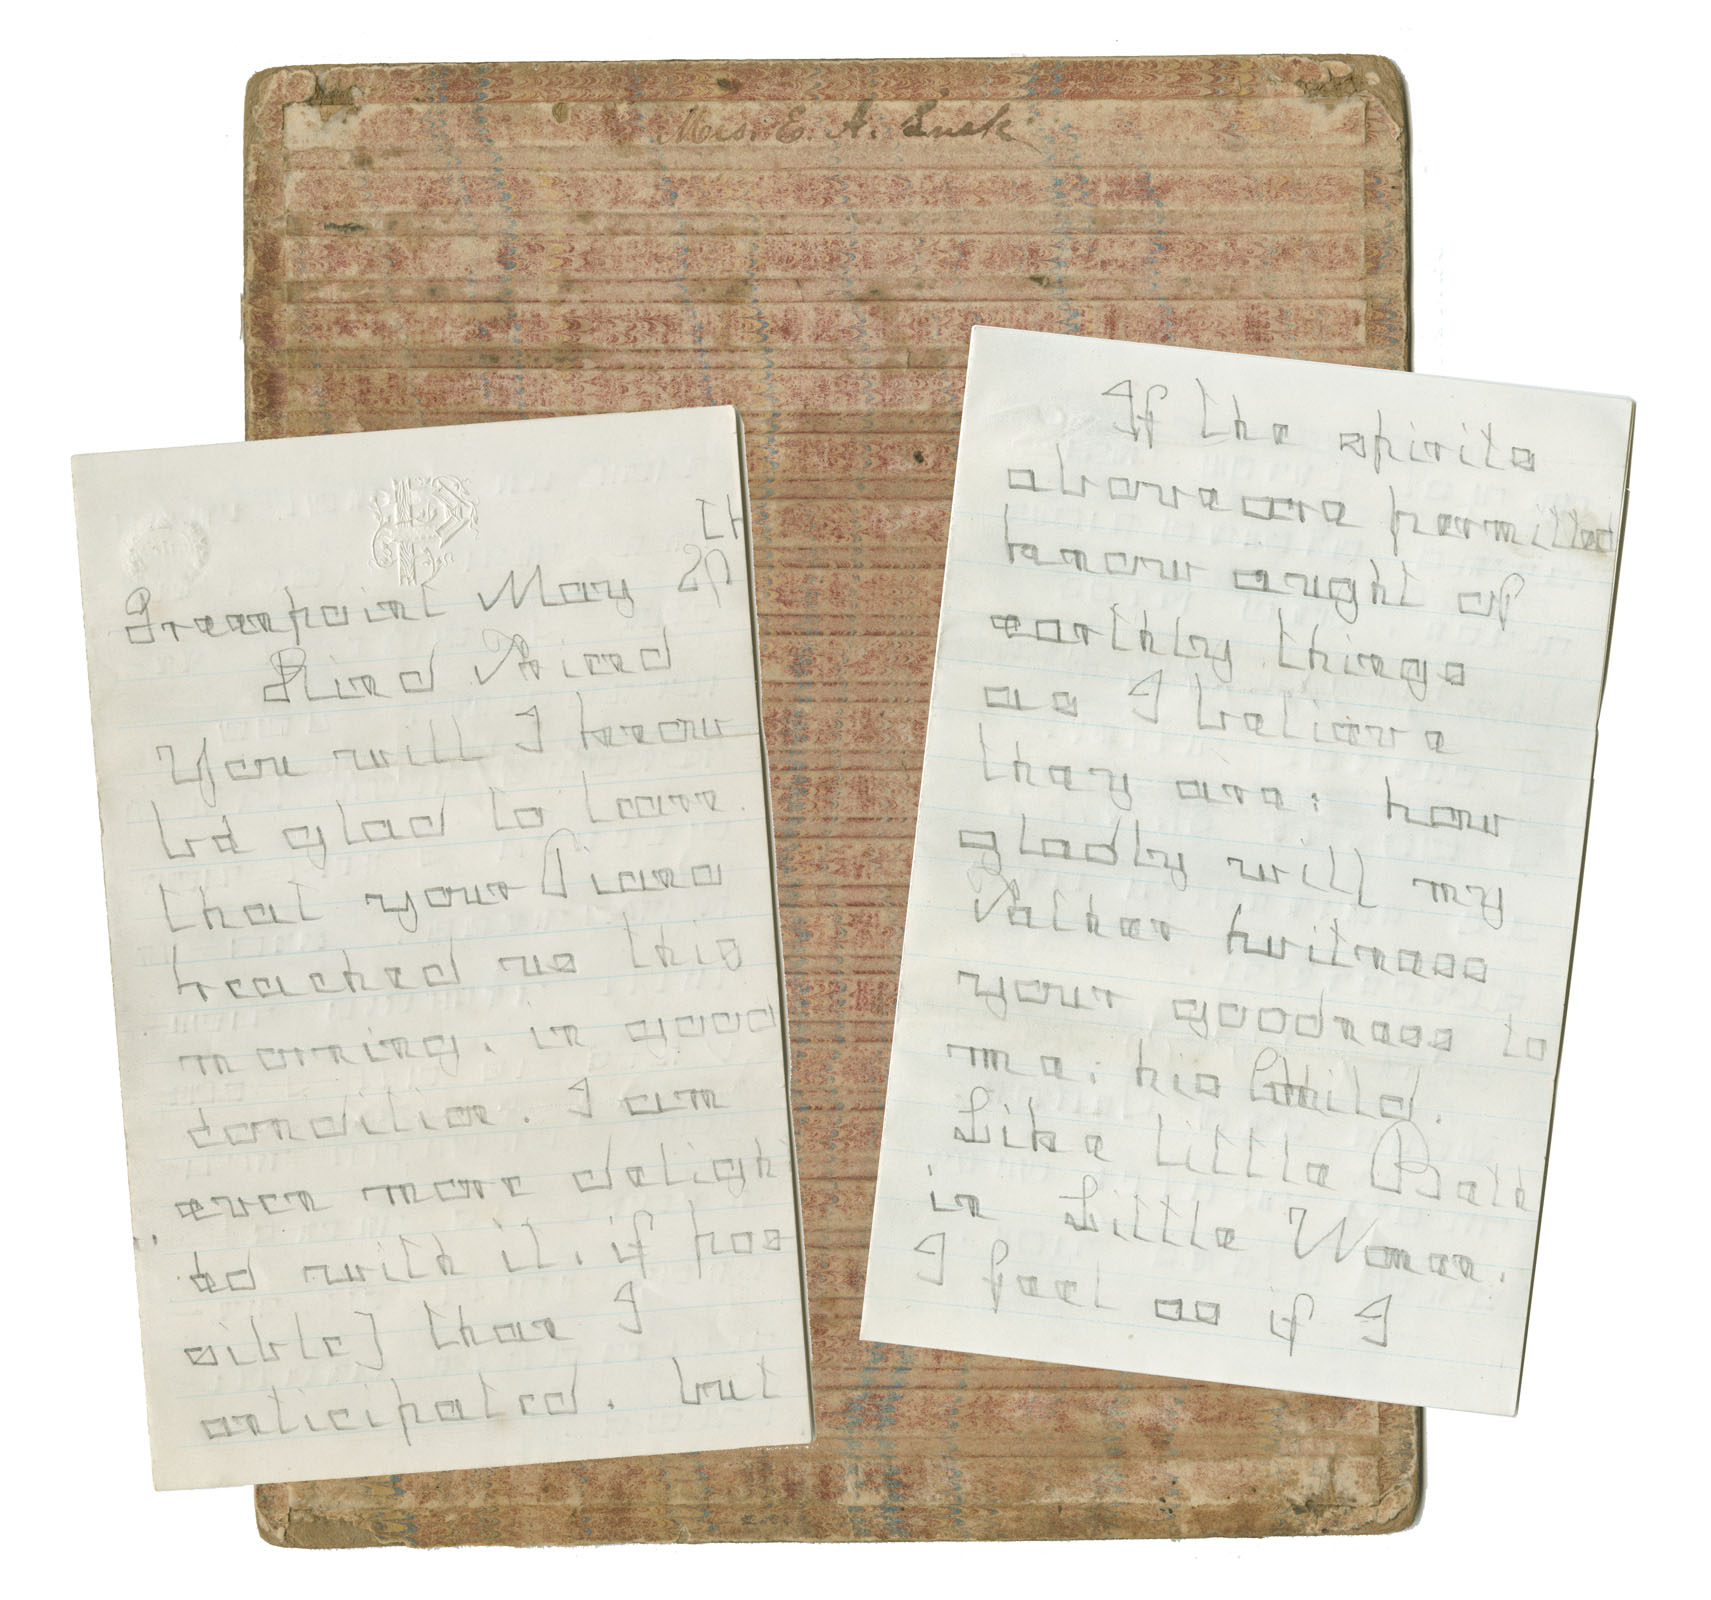 Mrs. E. A. Lusk
th
Greenpoint May 29
Kind Friend
You will I know
be glad to learn.
that your Piano
reached us this
morning. in good
condition. I am
even more deligh
ted with it. if pos
sible] than I
anticipated. but
If the spirits
above are permitted
know aught of
earthly things
as I believe
they are: how
gladly will my
Father witness
your goodness to
me: his Child.
Like little Beth
in Little Women.
I feel as if I